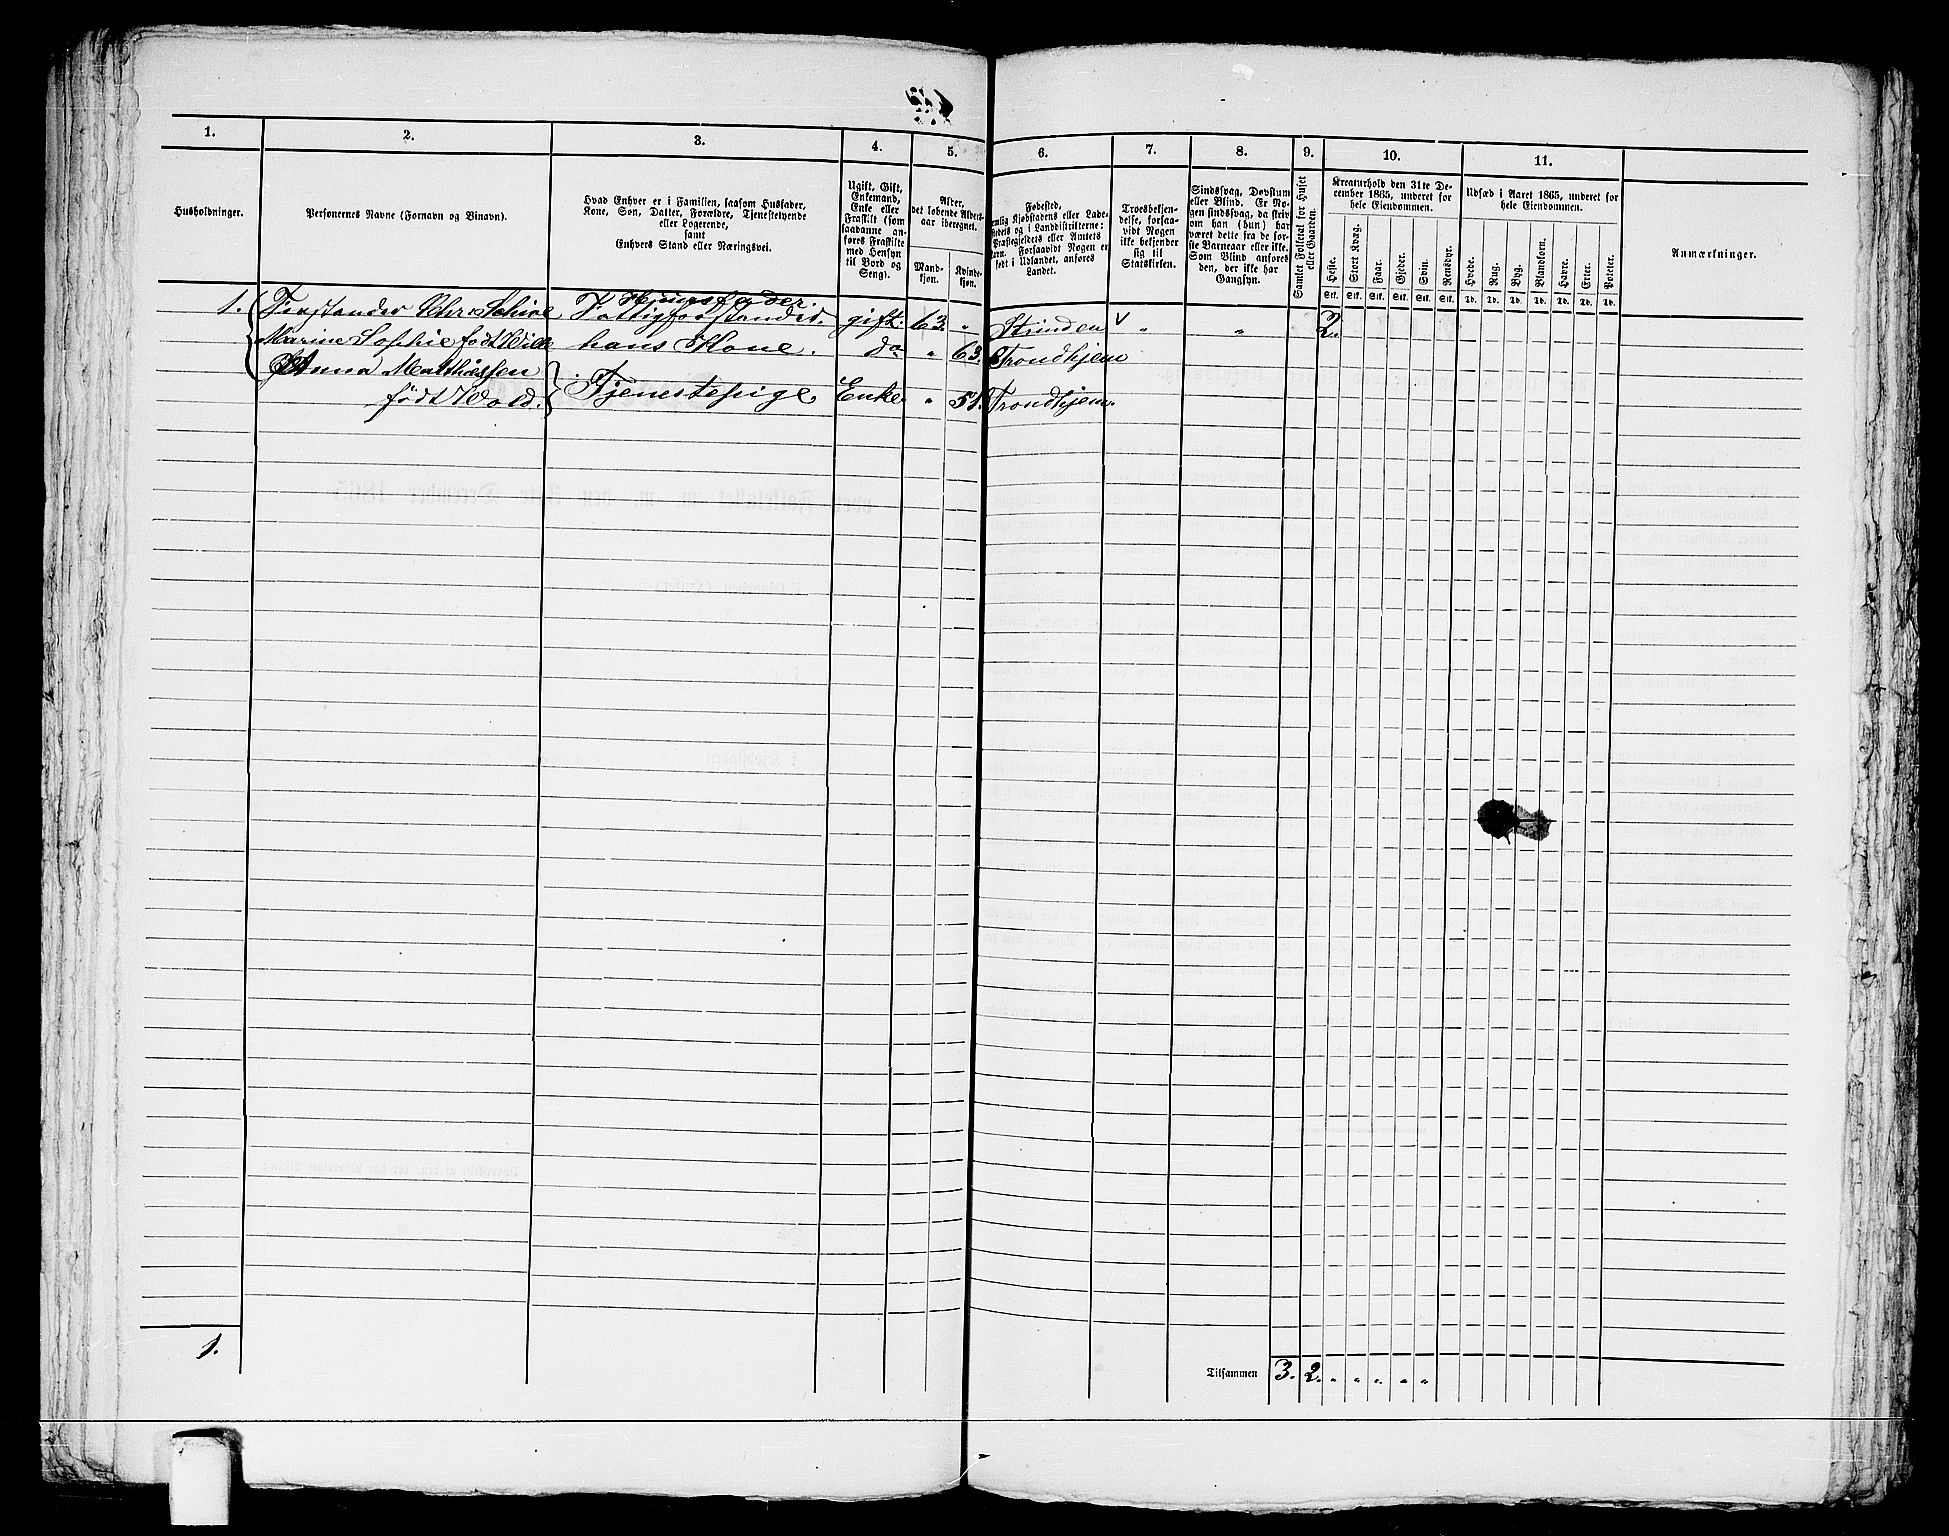 1. 2. 3. 4. 5. 6. 7. 8. 9. 10. 11.
Husholdninger.
Personernes Navne (Fornavn og Binavn).
Hvad Enhver er i Familien, saasom Husfader,
Kone, Søn, Datter, Forældre, Tjenestetyende
eller Logerende,
samt
Enhvers Stand eller Næringsvei.
Ugift, Gift,
Enkemand,
Enke eller
Fraskilt (som
saadanne an-
føres Fraskilte
med Hensyn
til Bord og
Seng).
Alder,
det løbende Alders-
aar iberegnet.
Mand-
kjøn.
Kvinde-
kjøn.
Fødested,
Kjøbstadens eller Lade-
stedets og i Landdistrikterne:
Præstegjeldets eller Amtets
Navn. Forsaavidt Nogen er
født i Udlandet, anføres
Landet.
Troesbekjen-
delse, forsaa-
vidt Nogen
ikke bekjender
sig til
Statskirken.
Sindssvag, Døvstum
eller Blind. Er No-
gen sindssvag, da skriv
om han (hun) har
været dette fra de før-
ste Barneaar eller ikke.
Som Blind anføres
den, der ikke har
Gangsyn.
Samlet Folketal for Huset
eller Gaarden.
Kreaturhold den 31te De-
cember 1865, underet for
hele Eiendommen.
Heste. Stort Kvæg. Faar. Gjeder. Svin. Rensdyr.
Stk. Stk. Stk. Stk. Stk. Stk.
Udsæd i Aaret 1865, underet for
hele Eiendommen.
Hvede. Rug. Byg. Blandkorn. Havre. Erter. Poteter.
Td. Td. Td. Td. Td. Td. Td.
Anmærkninger.
Huusfader.
1. Forstander Chr. Schive Fattigforstander. gift. 63. " Strinden V " " 2.
Marine Sophie født Wille hans Kone. do " 63. Trondhjem
Anna Matthiessen
født Wold. Tjenestepige Enke " 51. Trondhjem.
1.
Tilsammen 3. 2. " " " " "